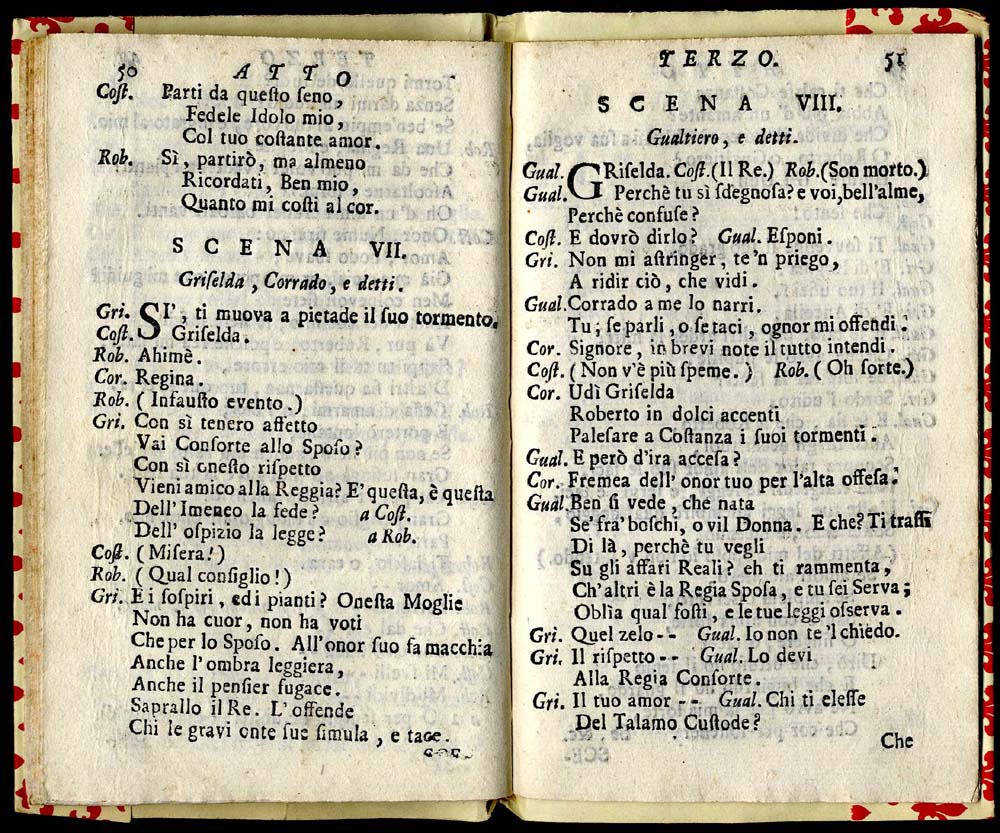 50 ATTO
Cost. Parti da questo seno,
Fedele Idolo mio,
Col tuo costante amor.
Rob. Sì, partirò, ma almeno
Ricordati, Ben mio,
Quanto mi costi al cor.
SCENA VII.
Griselda, Corrado, e detti.
Gri. SI', ti muova a pietade il suo tormento.
Cost. Griselda.
Rob. Ahimè.
Cor. Regina.
Rob. (Infausto evento.)
Gri. Con sì tenero affetto
Vai Consorte allo Sposo?
Con sì onesto rispetto
Vieni amico alla Reggia? E' questa, è questa
Dell' Imeneo la fede? a Cost.
Dell' ospizio la legge? a Rob.
Cost. (Misera!)
Rob. (Qual consiglio!)
Gri. E i sospiri, ed i pianti? Onesta Moglie
Non ha cuor, non ha voti
Che per lo Sposo. All'onor suo fa macchia
Anche l'ombra leggiera,
Anche il pensier fugace.
Saprallo il Re. L'offende
Chi le gravi onte sue simula, e tace.
TERZO. 51
SCENA VIII.
Gualtiero, e detti.
Gual. GRiselda. Cost. (Il Re.) Rob. (Son morto.)
Gual. Perchè tu sì sdegnosa? e voi, bell'alme,
Perchè confuse?
Cost. E dovrò dirlo? Gual. Esponi.
Gri. Non mi astringer, te'n priego,
A ridir ciò, che vidi.
Gual. Corrado a me lo narri.
Tu; se parli, o se taci, ognor mi offendi.
Cor. Signore, in brevi note il tutto intendi.
Cost. (Non v'è più speme.) Rob. (Oh sorte.)
Cor. Udì Griselda
Roberto in dolci accenti
Palesare a Costanza i suoi tormenti.
Gual. E però d'ira accesa?
Cor. Fremea dell' onor tuo per l'alta offesa.
Gual. Ben si vede, che nata
Se' fra' boschi, o vil Donna. E che? Ti trassi
Di là, perchè tu vegli
Su gli affari Reali? eh ti rammenta,
Ch'altri è la Regia Sposa, e tu sei Serva;
Oblìa qual fosti, e le tue leggi osserva.
Gri. Quel zelo-- Gual. Io non te'l chiedo.
Gri. Il rispetto-- Gual. Lo devi
Alla Regia Consorte.
Gri. Il tuo amor-- Gual. Chi ti elesse
Del Talamo Custode?
Che